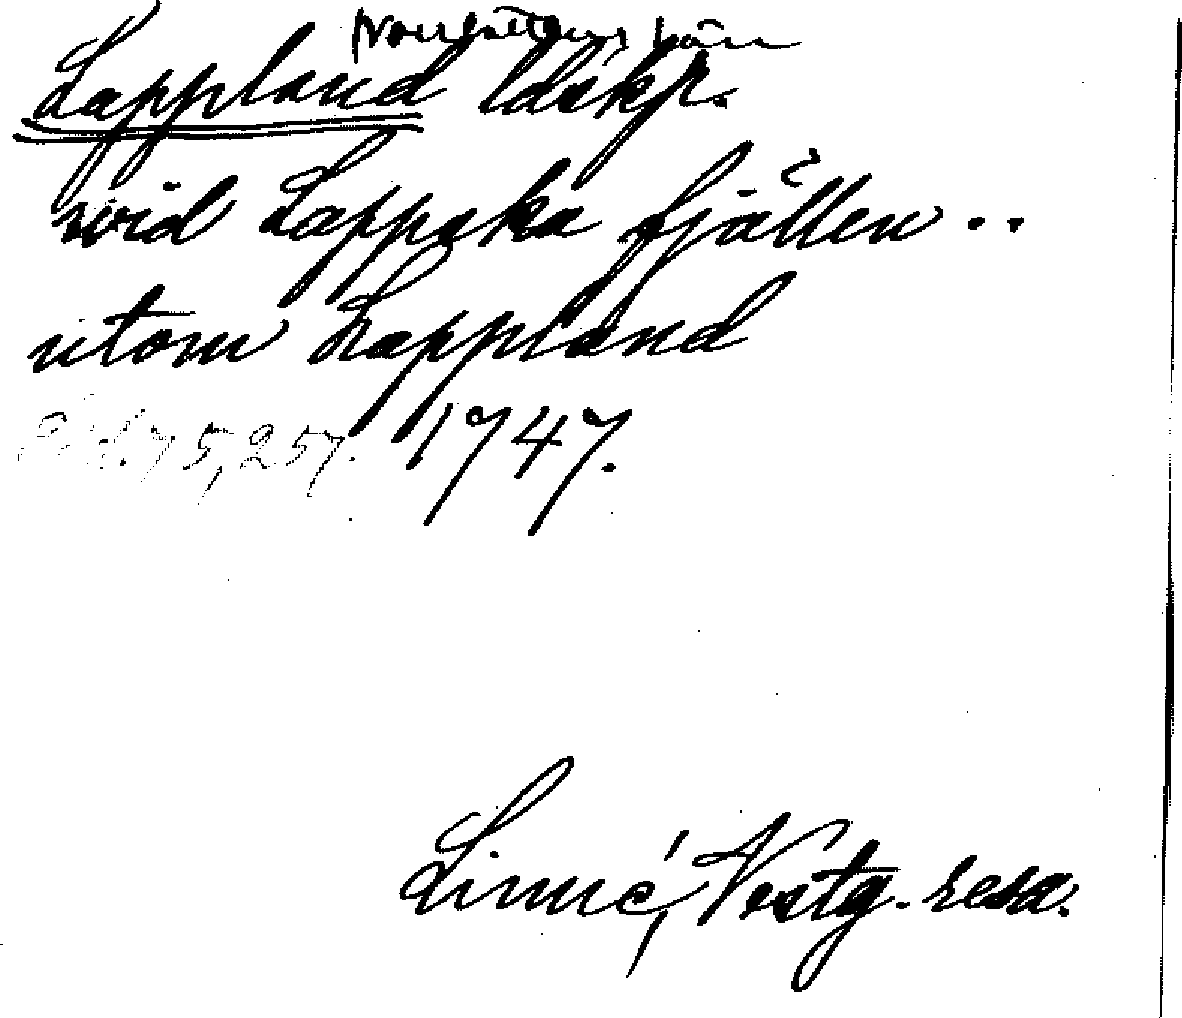 Norrbottens län
Lappland ldskp.
wid Lappska fjällen ..
utom Lappland
Sid. 75, 257. 1747.
Linné, Vestg. resa.